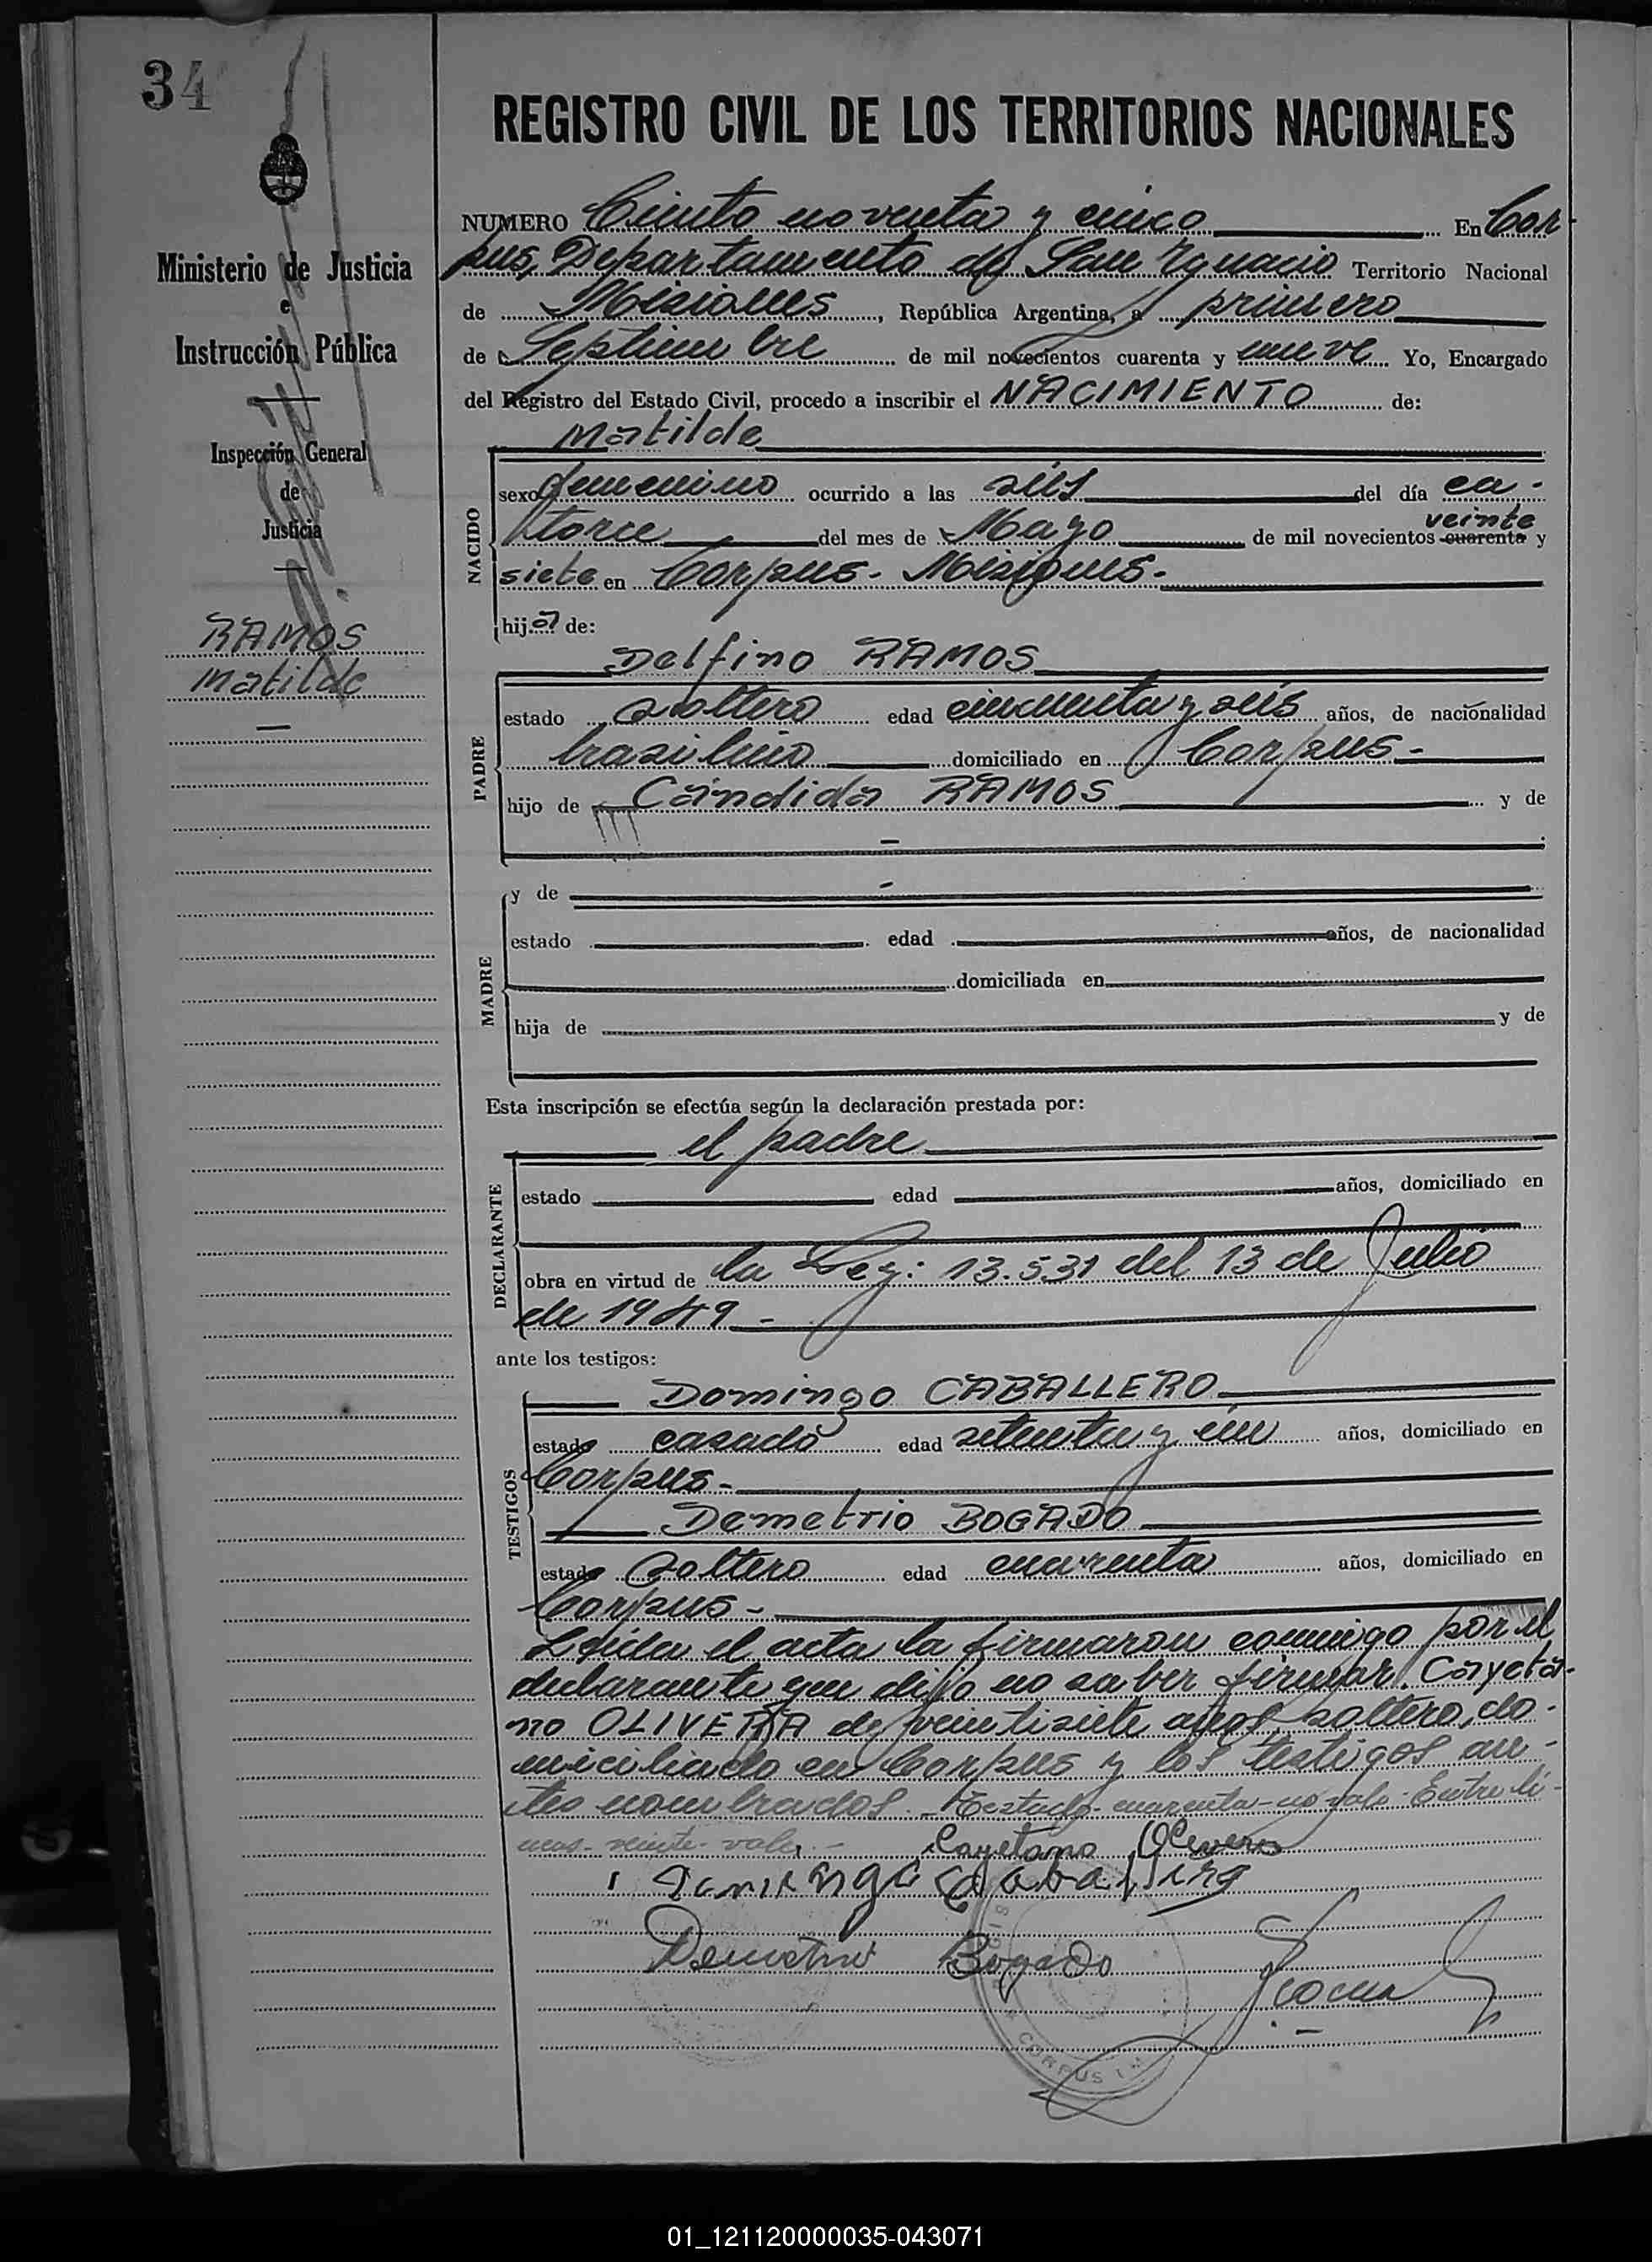 34
REGISTRO CIVIL DE LOS TERRITORIOS NACIONALES
Ministerio de Justicia
e
Instrucción Pública
Inspección General
de
Justicia
RAMOS
Matilde
NUMERO Ciento noventa y cinco En Cor-
pus, Departamento de San Ygnacio Territorio Nacional
de Misiones, República Argentina, a primero
de Septiembre de mil novecientos cuarenta y nueve Yo, Encargado
del Registro del Estado Civil, procedo a inscribir el NACIMIENTO de:
Matilde
NACIDO
sexo femenino ocurrido a las seis del día ca-
torce del mes de Mayo de mil novecientos cuarenta y
veinte
siete en Corpus - Misiones -
hija de:
Delfino RAMOS
PADRE
estado soltero edad cincuenta y seis años, de nacionalidad
brasileño domiciliado en Corpus -
hijo de Cándida RAMOS y de
MADRE
y de
estado edad años, de nacionalidad
domiciliada en
hija de y de
Esta inscripción se efectúa según la declaración prestada por:
el padre
DECLARANTE
estado edad años, domiciliado en
obra en virtud de la Ley: 13.531 del 13 de Julio
de 1949 -
ante los testigos:
TESTIGOS
Domingo CABALLERO
estado casado edad setenta y un años, domiciliado en
Corpus -
Demetrio BOGADO
estado soltero edad cuarenta años, domiciliado en
Corpus -
Leída el acta la firmaron conmigo por el
declarante que dijo no saber firmar. Cayeta-
no OLIVERA de veintisiete años, soltero, do-
miciliado en Corpus y los testigos an-
tes nombrados. - Testado - cuarenta - no vale - Entre lí-
neas - veinte - vale -
Cayetano Olivera
Domingo Caballero
Demetrio Bogado
CORPUS
01_121120000035-043071